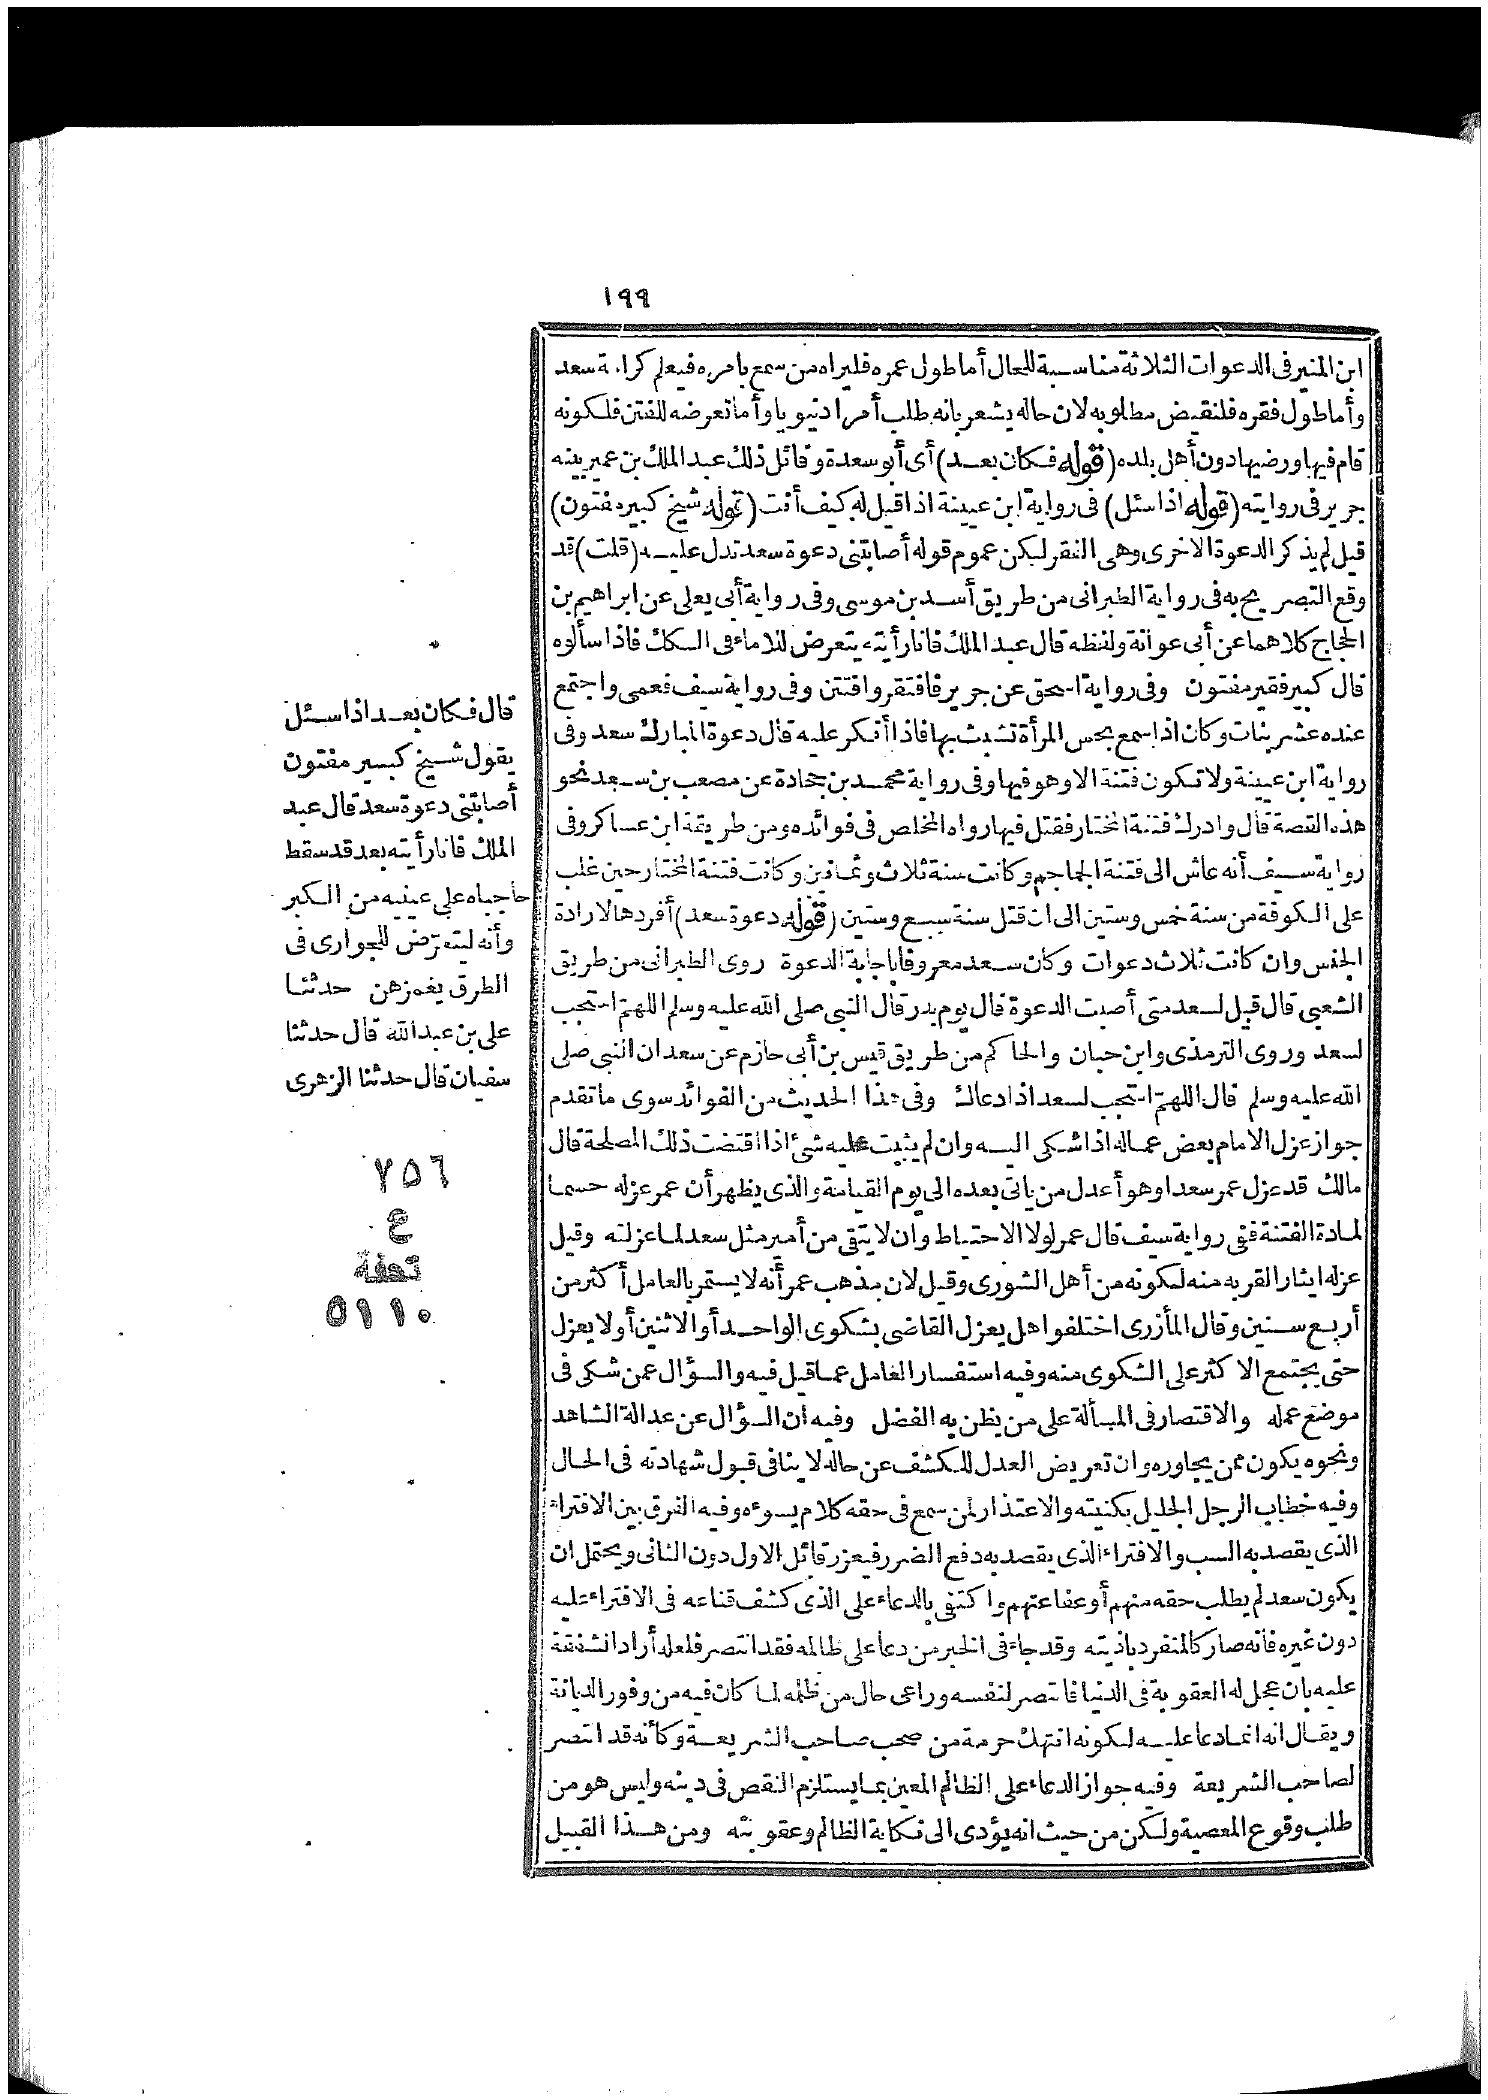 ١٩٩
ابن المنير فى الدعوات الثلاثة مناسبة للحال أما طول عمره فليراه من سمع بامره فيعلم كرامة سعد
وأما طول فقره فلنقيض مطلوبه لان حاله يشعر بانه طلب أمرا دنيويا وأما تعرضه للفتن فلكونه
قام فيها ورضيها دون أهل بلده (قوله فكان بعد) أى أبو سعدة وقائل ذلك عبد الملك بن عمير بينه
جرير فى روايته (قوله اذا سئل) فى رواية ابن عيينة اذا قيل له كيف أنت (قوله شيخ كبير مفتون)
قيل لم يذكر الدعوة الاخرى وهى الفقر لكن عموم قوله أصابتنى دعوة سعد تدل عليه (قلت) قد
وقع التصريح به فى رواية الطبرانى من طريق أسد بن موسى وفى رواية أبى يعلى عن ابراهيم بن
الحجاج كلاهما عن أبى عوانة ولفظه قال عبد الملك فانا رأيته يتعرض للاماء فى السكك فاذا سألوه
قال كبير فقير مفتون وفى رواية اسحق عن جرير فافتقر وافتتن وفى رواية سيف فعمى واجتمع
عنده عشر بنات وكان اذا سمع بحس المرأة تشبث بها فاذا أنكر عليه قال دعوة المبارك سعد وفى
رواية ابن عيينة ولا تكون فتنة الا وهو فيها وفى رواية محمد بن جحادة عن مصعب بن سعد نحو
هذه القصة قال وادرك فتنة المختار فقتل فيها رواه المخلص فى فوائده ومن طريقه ابن عساكر وفى
رواية سيف أنه عاش الى فتنة الجماجم وكانت سنة ثلاث وثمانين وكانت فتنة المختار حين غلب
على الكوفة من سنة خمس وستين الى ان قتل سنة سبع وستين (قوله دعوة سعد) أفردها لارادة
الجنس وان كانت ثلاث دعوات وكان سعد معروفا باجابة الدعوة روى الطبرانى من طريق
الشعبى قال قيل لسعد متى أصبت الدعوة قال يوم بدر قال النبى صلى الله عليه وسلم اللهم استجب
لسعد وروى الترمذى وابن حبان والحاكم من طريق قيس بن أبى حازم عن سعد ان النبى صلى
الله عليه وسلم قال اللهم استجب لسعد اذا دعاك وفى هذا الحديث من الفوائد سوى ما تقدم
جواز عزل الامام بعض عماله اذا شكى اليه وان لم يثبت عليه شئ اذا اقتضت ذلك المصلحة قال
مالك قد عزل عمر سعدا وهو أعدل من ياتى بعده الى يوم القيامة والذى يظهر أن عمر عزله حسما
لمادة الفتنة ففى رواية سيف قال عمر لولا الاحتياط وان لا يتقى من أمير مثل سعد لما عزلته وقيل
عزله ايثارا لقربه منه لكونه من أهل الشورى وقيل لان مذهب عمر أنه لا يستمر بالعامل أكثر من
أربع سنين وقال المازرى اختلفوا هل يعزل القاضى بشكوى الواحد أو الاثنين أو لا يعزل
حتى يجتمع الاكثر على الشكوى منه وفيه استفسار العامل عما قيل فيه والسؤال عمن شكى فى
موضع عمله والاقتصار فى المسألة على من يظن به الفضل وفيه ان السؤال عن عدالة الشاهد
ونحوه يكون ممن يجاوره وان تعريض العدل للكشف عن حاله لا ينافى قبول شهادته فى الحال
وفيه خطاب الرجل الجليل بكنيته والاعتذار لمن سمع فى حقه كلام يسوءه وفيه الفرق بين الافتراء
الذى يقصد به السب والافتراء الذى يقصد به دفع الضرر فيعزر قائل الاول دون الثانى ويحتمل ان
يكون سعد لم يطلب حقه منهم أو عفا عنهم واكتفى بالدعاء على الذى كشف قناعه فى الافتراء عليه
دون غيره فانه صار كالمنفرد باذيته وقد جاء فى الخبر من دعا على ظالمه فقد انتصر فلعله أراد الشفقة
عليه بان عجل له العقوبة فى الدنيا فانتصر لنفسه وراعى حال من ظلمه لما كان فيه من وفور الديانة
ويقال انه انما دعا عليه لكونه انتهك حرمة من صحب صاحب الشريعة وكأنه قد انتصر
لصاحب الشريعة وفيه جواز الدعاء على الظالم المعين بما يستلزم النقص فى دينه وليس هو من
طلب وقوع المعصية ولكن من حيث انه يؤدى الى نكاية الظالم وعقوبته ومن هذا القبيل
قال فكان بعد اذا سئل
يقول شيخ كبير مفتون
أصابتنى دعوة سعد قال عبد
الملك فانا رأيته بعد قد سقط
حاجباه على عينيه من الكبر
وأنه ليتعرّض للجوارى فى
الطرق يغمزهن حدثنا
على بن عبد الله قال حدثنا
سفيان قال حدثنا الزهرى
٧٥٦
ع
تحفة
٥١١٠